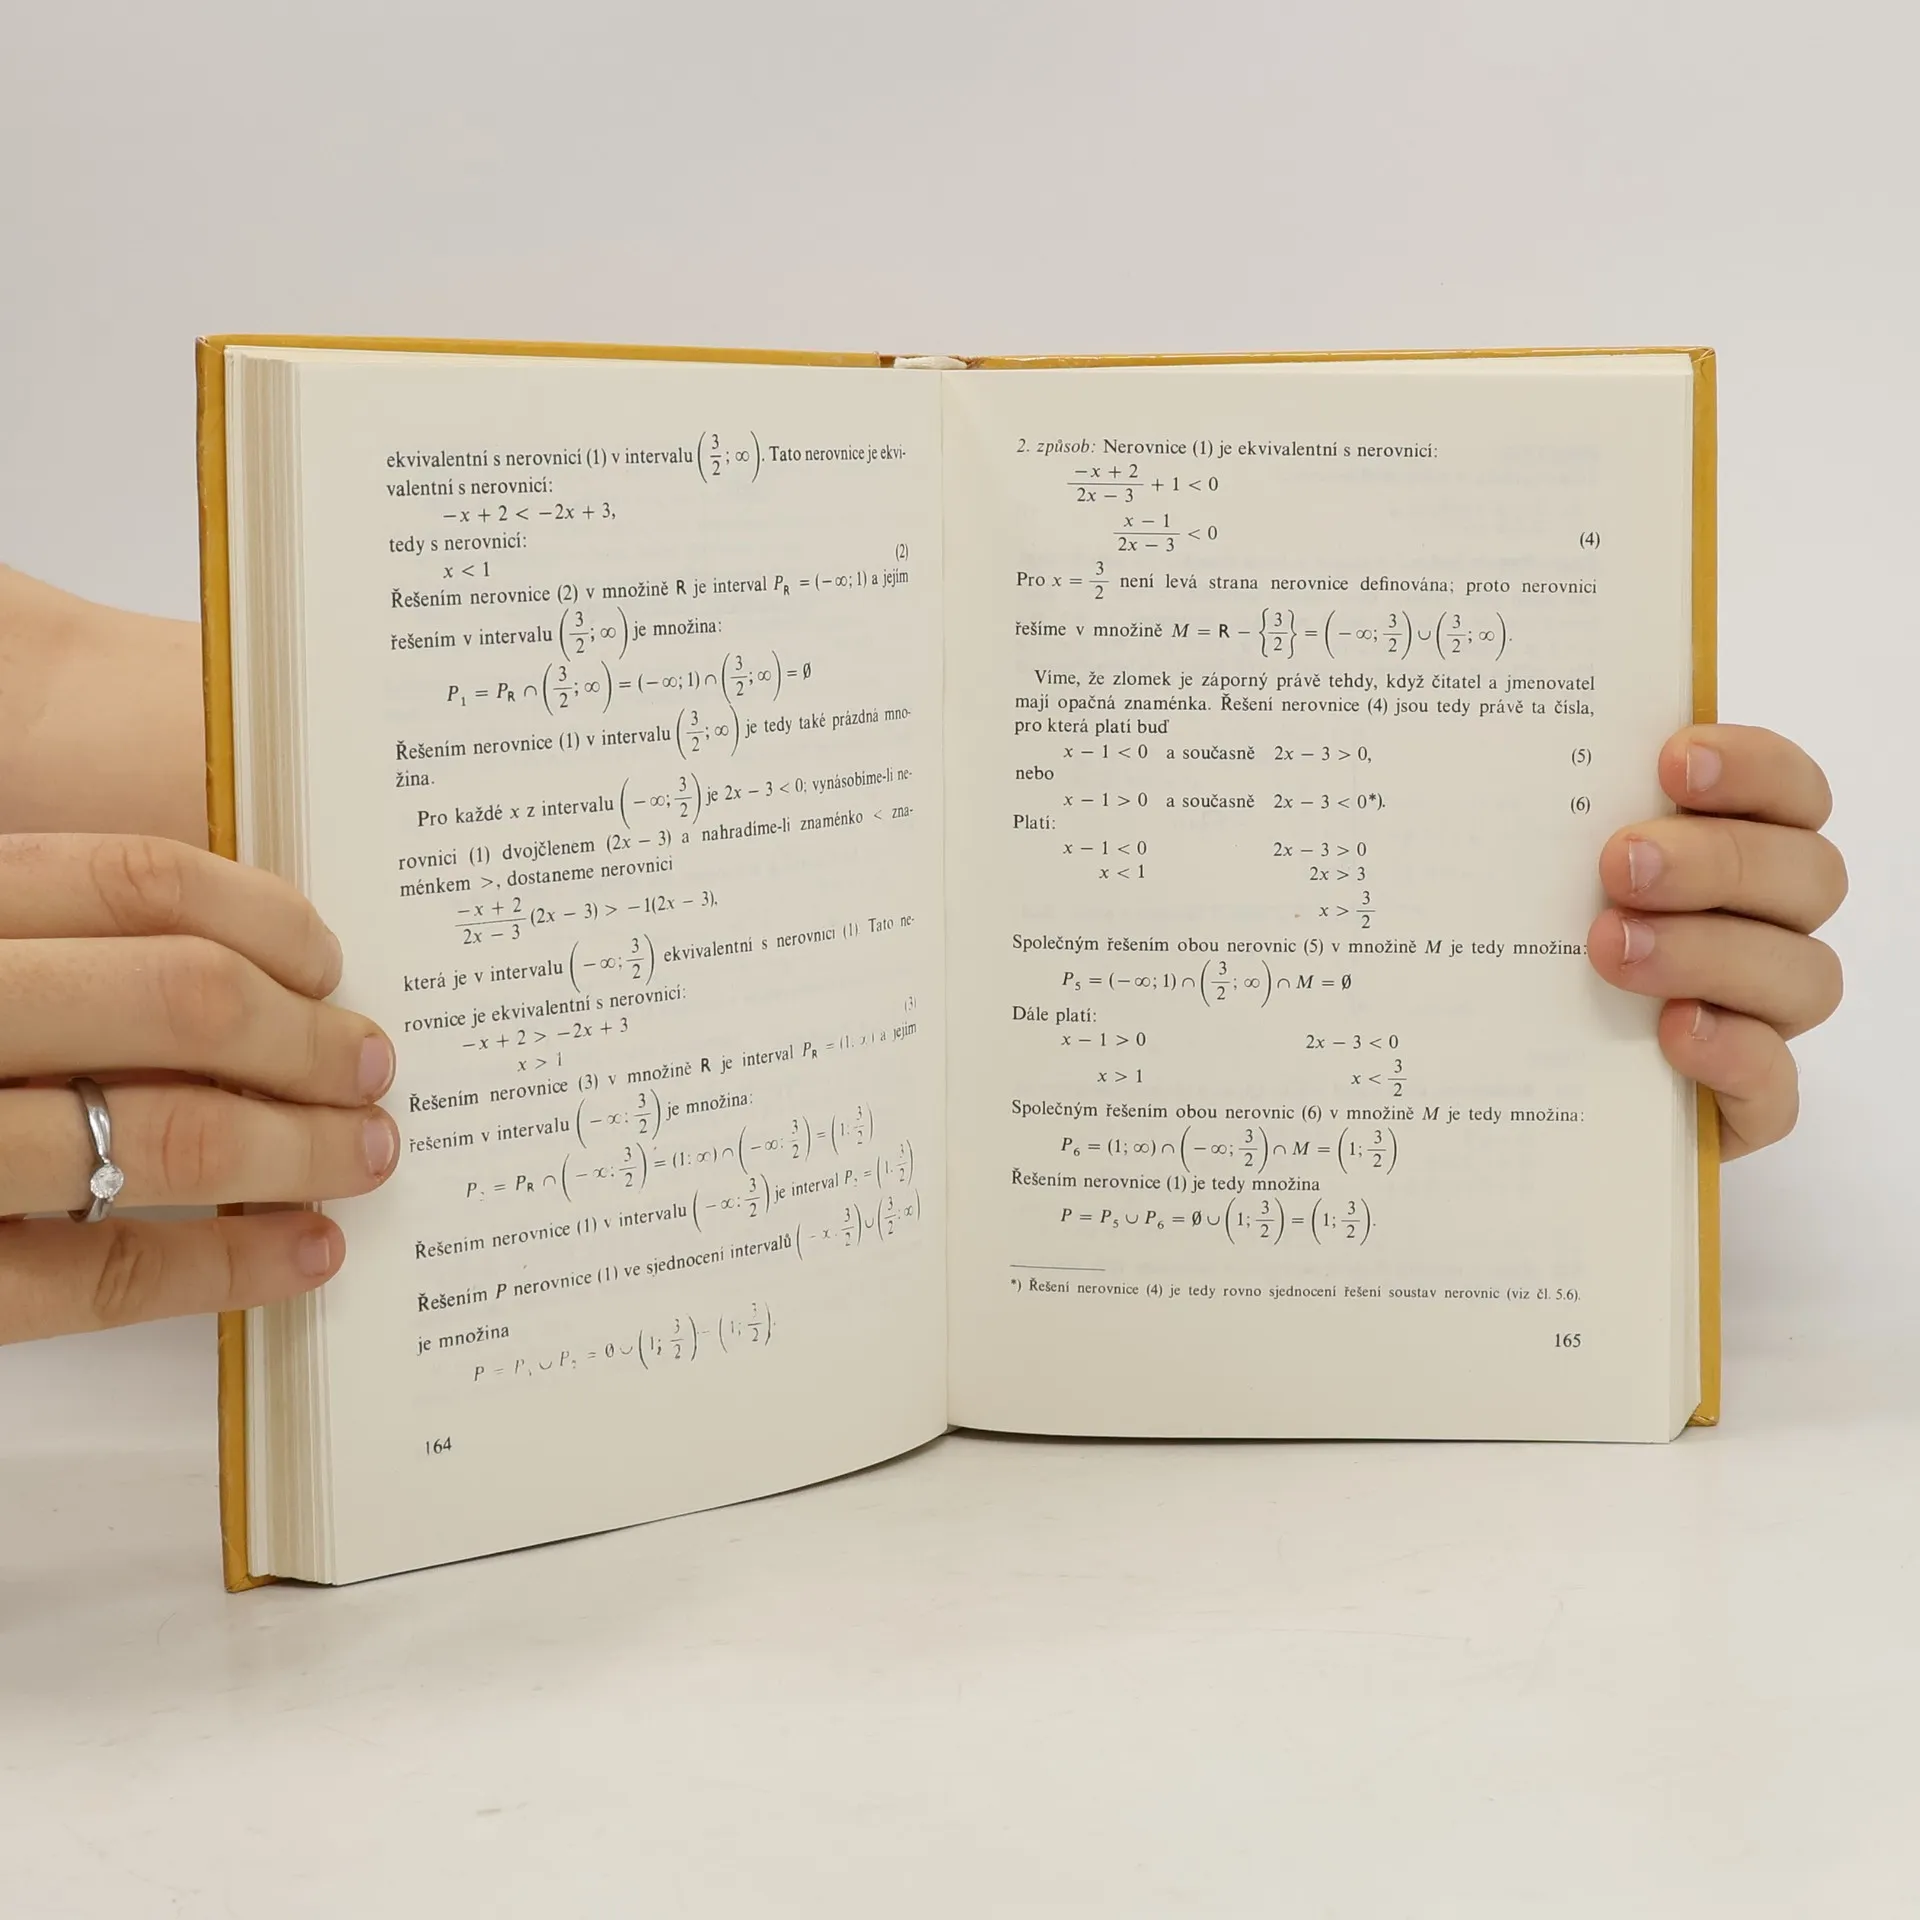 ekvivalentní s nerovnicí (1) v intervalu (3/2; ∞). Tato nerovnice je ekvi-
valentní s nerovnicí:
−x + 2 < −2x + 3,
tedy s nerovnicí:
x < 1 (2)
Řešením nerovnice (2) v množině R je interval P_R = (−∞; 1) a jejím
řešením v intervalu (3/2; ∞) je množina:
P₁ = P_R ∩ (3/2; ∞) = (−∞; 1) ∩ (3/2; ∞) = ∅
Řešením nerovnice (1) v intervalu (3/2; ∞) je tedy také prázdná mno-
žina.
Pro každé x z intervalu (−∞; 3/2) je 2x − 3 < 0; vynásobíme-li ne-
rovnici (1) dvojčlenem (2x − 3) a nahradíme-li znaménko < zna-
ménkem >, dostaneme nerovnici
(−x + 2)/(2x − 3) (2x − 3) > −1(2x − 3),
která je v intervalu (−∞; 3/2) ekvivalentní s nerovnicí (1) Tato ne-
rovnice je ekvivalentní s nerovnicí:
−x + 2 > −2x + 3
x > 1 (3)
Řešením nerovnice (3) v množině R je interval P_R = (1; ∞) a jejím
řešením v intervalu (−∞; 3/2) je množina:
P₂ = P_R ∩ (−∞; 3/2) = (1; ∞) ∩ (−∞; 3/2) = (1; 3/2)
Řešením nerovnice (1) v intervalu (−∞; 3/2) je interval P₂ = (1; 3/2)
Řešením P nerovnice (1) ve sjednocení intervalů (−∞; 3/2) ∪ (3/2; ∞)
je množina
P = P₁ ∪ P₂ = ∅ ∪ (1; 3/2) = (1; 3/2).
164
2. způsob: Nerovnice (1) je ekvivalentní s nerovnicí:
(−x + 2)/(2x − 3) + 1 < 0
(x − 1)/(2x − 3) < 0 (4)
Pro x = 3/2 není levá strana nerovnice definována; proto nerovnici
řešíme v množině M = R − {3/2} = (−∞; 3/2) ∪ (3/2; ∞).
Víme, že zlomek je záporný právě tehdy, když čitatel a jmenovatel
mají opačná znaménka. Řešení nerovnice (4) jsou tedy právě ta čísla,
pro která platí buď
x − 1 < 0 a současně 2x − 3 > 0, (5)
nebo
x − 1 > 0 a současně 2x − 3 < 0*). (6)
Platí:
x − 1 < 0 2x − 3 > 0
x < 1 2x > 3
x > 3/2
Společným řešením obou nerovnic (5) v množině M je tedy množina:
P₅ = (−∞; 1) ∩ (3/2; ∞) ∩ M = ∅
Dále platí:
x − 1 > 0 2x − 3 < 0
x > 1 x < 3/2
Společným řešením obou nerovnic (6) v množině M je tedy množina:
P₆ = (1; ∞) ∩ (−∞; 3/2) ∩ M = (1; 3/2)
Řešením nerovnice (1) je tedy množina
P = P₅ ∪ P₆ = ∅ ∪ (1; 3/2) = (1; 3/2).
*) Řešení nerovnice (4) je tedy rovno sjednocení řešení soustav nerovnic (viz čl. 5.6).
165